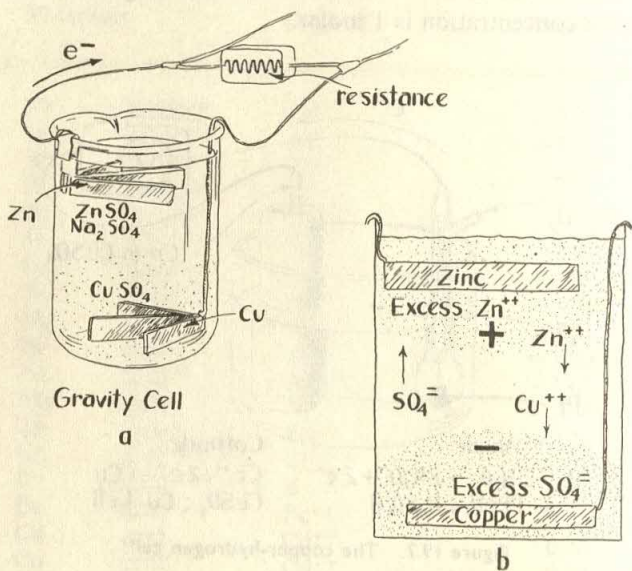 e⁻
resistance
Zn
ZnSO₄
Na₂SO₄
CuSO₄
Cu
Gravity Cell
a
Zinc
Excess Zn⁺⁺
+
Zn⁺⁺
SO₄⁼
Cu⁺⁺
−
Excess SO₄⁼
Copper
b